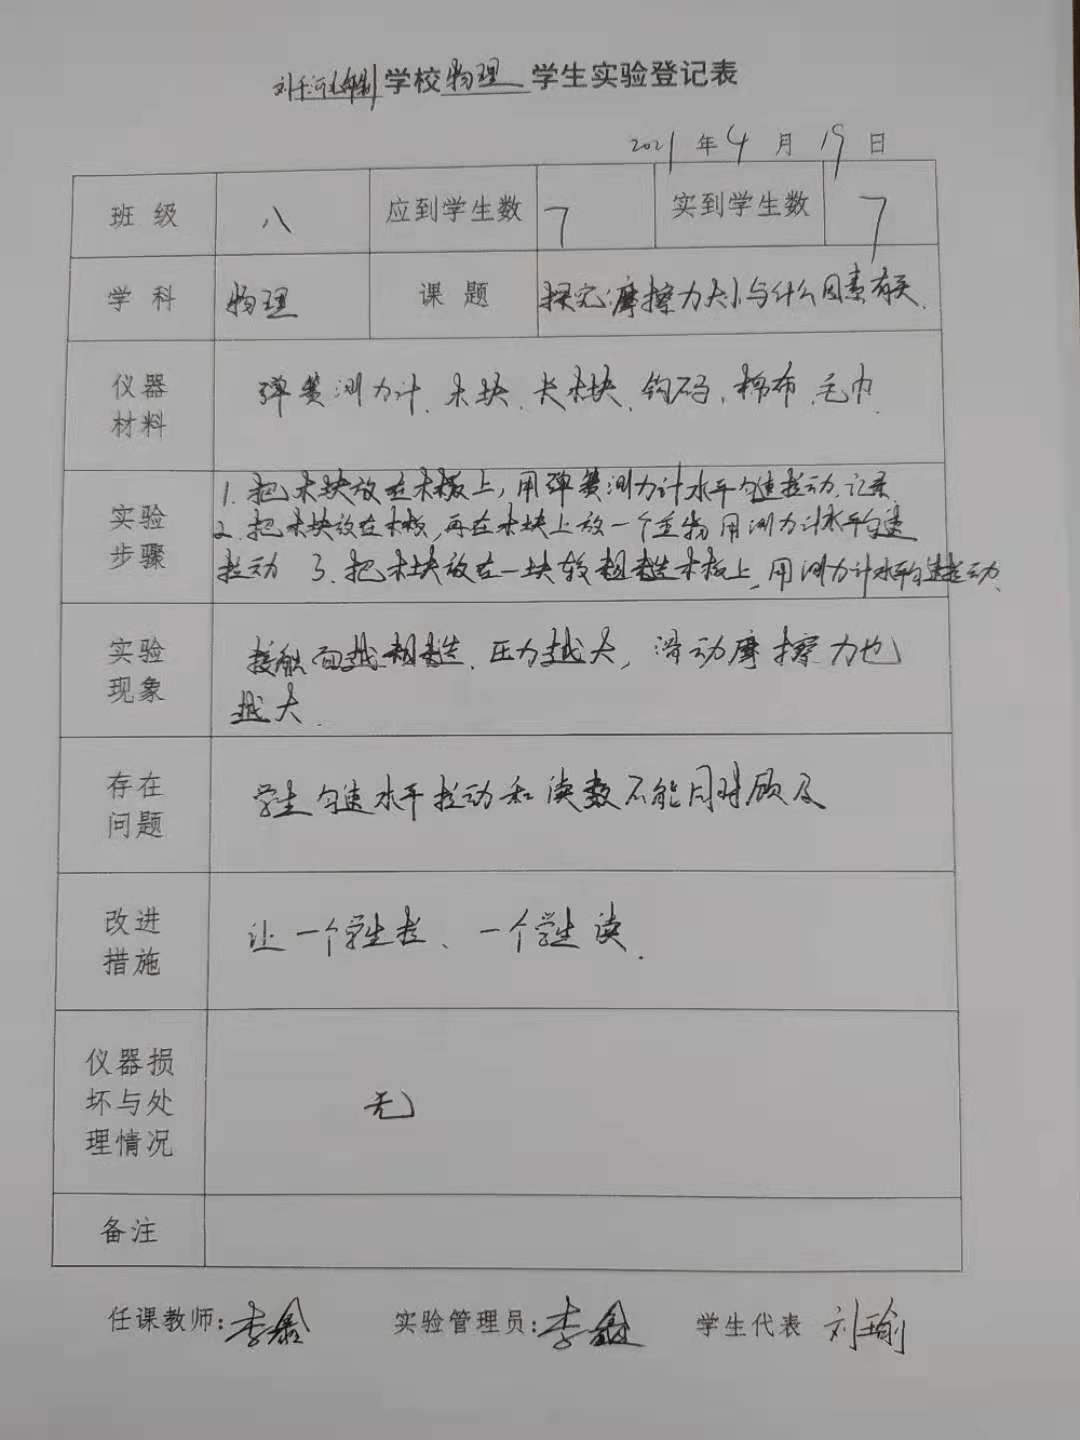 学校物理学生实验登记表
2021年4月19日
班级 八 应到学生数 7 实到学生数 7
学科 物理 课题 探究摩擦力大小与什么因素有关.
仪器材料 弹簧测力计、木块、长木块、钩码、棉布、毛巾.
实验步骤 1. 把木块放在木板上,用弹簧测力计水平匀速拉动.记录
2. 把木块放在木板,再在木块上放一个重物用测力计水平匀速
拉动 3. 把木块放在一块较粗糙木板上,用测力计水平匀速拉动.
实验现象 接触面越粗糙、压力越大,滑动摩擦力也
越大.
存在问题 学生匀速水平拉动和读数不能同时顾及
改进措施 让一个学生拉、一个学生读.
仪器损坏与处理情况 无
备注
任课教师:李鑫 实验管理员:李鑫 学生代表 刘瑜